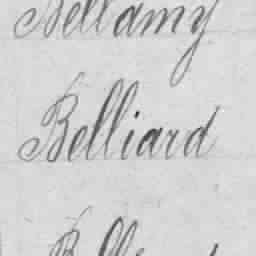 Bellamy
Belliard